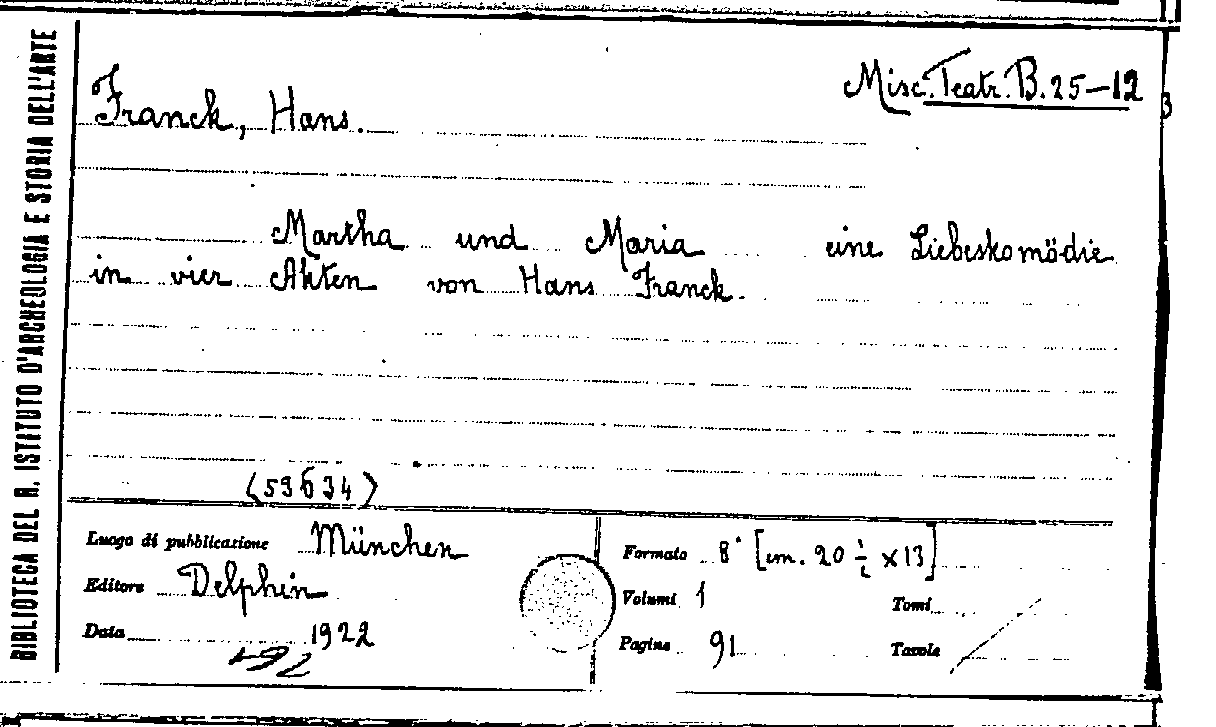 BIBLIOTECA DEL R. ISTITUTO D'ARCHEOLOGIA E STORIA DELL'ARTE
Misc. Teatr. B. 25-12
Franck, Hans.
Martha und Maria eine Liebeskomödie
in vier Akten von Hans Franck.
(59634)
Luogo di pubblicazione München
Editore Delphin
Data 1922
Formato 8° [cm. 20 ½ x 13]
Volumi 1
Tomi
Pagine 91
Tavole